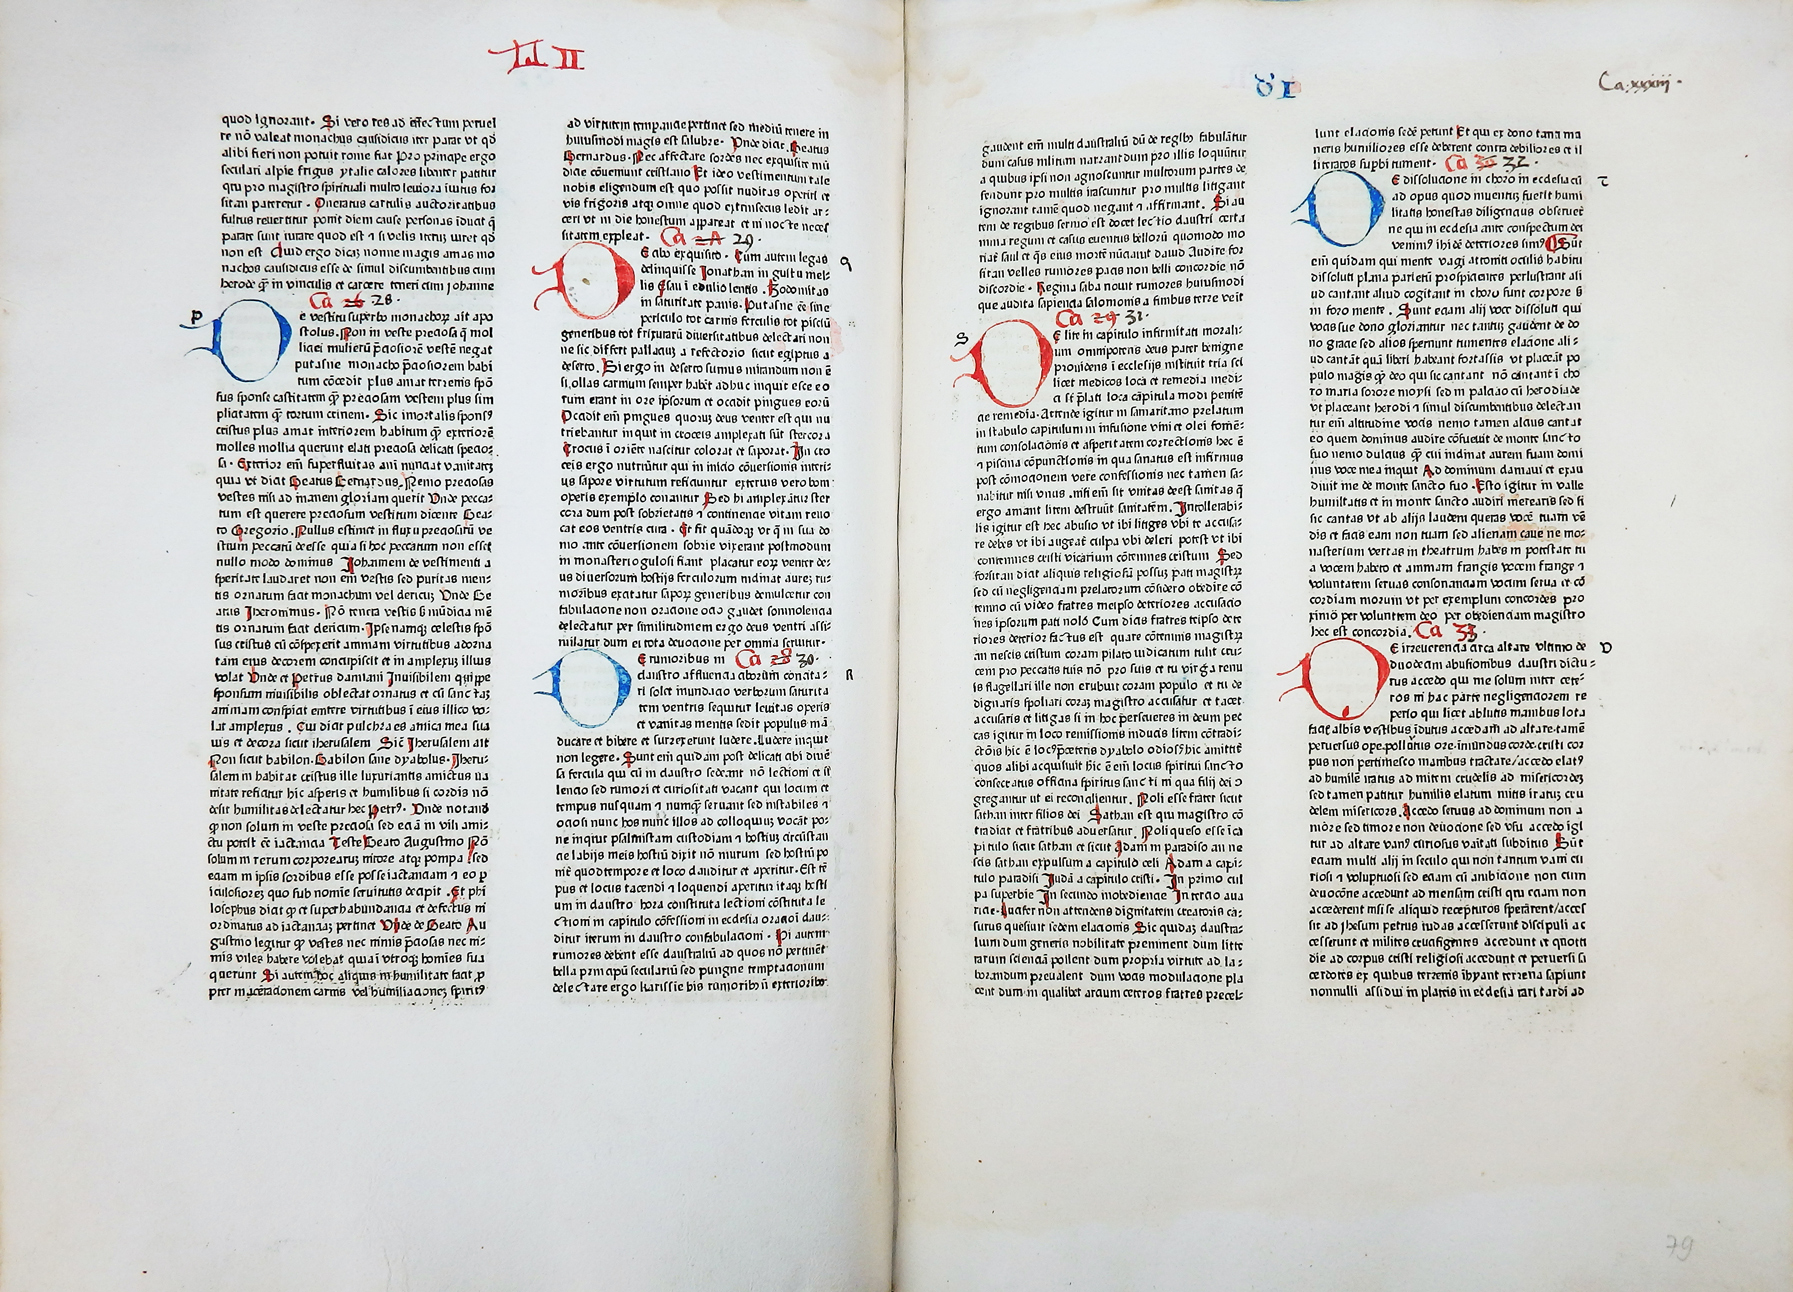 Li II
quod ignorant. Si vero res ad effectum peruel
re nō valeat monachus causidicus iter parat vt qd
alibi fieri non potuit rome fiat Pro principe ergo
seculari alpie frigus ytalie calores libenter patitur
qui pro magistro spirituali multo leuiora iuitus for
sitan pateretur. Oneratus cartulis auctoritatibus
fultus reuertitur ponit diem cause personas īducit q̄
parate sunt iurare quod est ⁊ si velis iterū iuret qd
non est Quid ergo dicā nonne magis amas mo
nachos causidicus esse de simul discumbentibus cum
herode q̄ in vinculis et carcere teneri cum iohanne
Ca 28.
p
De vestitu superbo monachoꝝ ait apo
stolus. Non in veste preciosa q̄ mol
liciei mulierū p̄ciosiorē vestē negat
putasne monacho p̄ciosiorem habi
tum cōcedit plus amat terrenis spō
sus sponse castitatem q̄ preciosam vestem plus sim
plicitatem q̄ tortum crinem. Sic imortalis sponsꝰ
cristus plus amat interiorem habitum q̄ exteriorē
molles mollia querunt elati preciosa delicati specio-
sa. Exterior em̄ superfluitas aīi nunciat vanitatez
quia vt dicit Beatus Bernardus. Nemo preciosas
vestes nisi ad inanem gloriam querit Vnde pecca-
tum est querere preciosum vestitum dicente Bea-
to Gregorio. Nullus estimet in fluxu preciosarū ve
stium peccatū deesse quia si hoc peccatum non esset
nullo modo dominus Johannem de vestimenti a
speritate laudaret non em̄ vestis sed puritas men-
tis ornatum facit monachum vel clericū Vnde Be
atus Iheronimus. Nō tenera vestis sī mūdicia mē
tis ornatum facit clericum. Ipse namqꝫ celestis spō
sus cristus cū cōspexerit animam virtutibus adorna
tam eius decorem concipiscit et in amplexus illius
volat Vnde et Petrus damiani Inuisibilem quippe
sponsum inuisibilis oblectat ornatus et cū sanctaꝫ
animam conspicit emitere virtutibus ī eius illico vo-
lat amplexus. Cui dicit pulchra es amica mea sua
uis et decora sicut iherusalem Sicut Jherusalem ait
Non sicut babilon. Babilon sane dyabolus. Jheru-
salem inhabitat cristus ille luxuriantis amictus ua
nitate reficitur hic asperis et humilibus si cordis nō
desit humilitas delectatur hec Petrꝰ. Vnde notand
q non solum in veste preciosa sed eciā in vili ami-
ctu potest cē iactancia Teste Beato Augustino Nō
solum in rerum corporearuꝫ nitore atqꝫ pompa sed
eciam in ipsis sordibus esse posse iactanciam ⁊ eo p
iculosiorez quo sub nomīe seruitutis decipit. Et phi
losophus dicit q et superhabundancia et defectus in
ordinatus ad iactanciaꝫ pertinet Vnde de Beato Au
gustino legitur q vestes nec nimis p̄ciosas nec ni-
mis viles habere volebat quia ī vtroqꝫ homīes sua
querunt Si autem hoc aliquis in humilitate faciat p
pter maceracionem carnis vel humiliacioneꝫ spiritꝰ
ad virtutem temperancie pertinet sed mediū tenere in
huiusmodi magis est salubre. Vnde dicit. Beatus
Bernardus. Nec affectare sordes nec exquisite mū
dicie cōueniunt cristiano Et ideo vestimentum tale
nobis eligendum est quo possit nuditas operiri et
vis frigoris atqꝫ omne quod extrinsecus ledit ar-
ceri vt in die honestum appareat et in nocte neces
sitatem expleat. Ca 29.
q
De cibo exquisito. Cum autem legas
delinquisse Jonathan in gustu mel-
lis Esau ī edulio lentis. Sodomitas
in saturitate panis. Putasne ēē sine
periculo tot carnis ferculis tot pisciū
generibus tot frixurarū diuersitatibus delectari non
ne sic differt pallacium a refectorio sicut egiptus a
deserto. Si ergo in deserto sumus mirandum non ē
si ollas carnium semper habēt adhuc inquit esce eo
rum erant in ore ipsorum et occidit pingues eorū
Occidit em̄ pingues quoruꝫ deus venter est qui nu
triebantur inquit in croceis amplexati sūt stercora
Crocus ī oriēte nascitur colorat et saporat. In cro
ceis ergo nutriūtur qui in inicio cōuersionis interi-
us sapore virtutum reficiuntur exterius vero boni
operis exemplo conantur Sed hi amplexātur ster
cora dum post sobrietatis ⁊ continencie vitam reuo
cat eos ventris cura. Et fit quādoqꝫ vt q̄ in sua do
mo ante cōuersionem sobrie vixerant postmodum
in monasterio gulosi fiant placatur eoꝝ venter de-
us diuersorum hostijs ferculorum nidinat aureꝫ ru-
moribus excitatur saporꝫ generibus demulcetur con
fabulacione non oracione ocio gaudet somnolencia
delectatur per similitudinem ergo deus ventri assi-
milatur dum ei tota deuocione per omnia seruitur.
Ca 30.
R
De rumoribus in
claustro affluencia ciborum conata-
ri solet inundacio verborum saturita
tem ventris sequitur leuitas operis
et vanitas mentis sedit populus mā
ducare et bibere et surrexerunt ludere. Ludere inquit
non legere. Sunt em̄ quidam post delicati cibi diuē
sa fercula qui cū in claustro sedeant nō lectioni et si
lencio sed rumori et curiositati vacant qui locum et
tempus nusquam ⁊ numq̄ seruant sed instabiles ⁊
ociosi nunc hos nunc illos ad colloquiuꝫ vocāt po-
ne inqitur psalmistam custodiam ⁊ hostiuꝫ circūstan
cie labijs meis hostiū dixit nō murum sed hostiū po
nit quod tempore et loco clauditur et aperitur. Est tē
pus et locus tacendi ⁊ loquendi aperitur itaqꝫ hosti
um in claustro hora constituta lectioni cōstituta le
ctioni in capitulo cōfessioni in ecclesia oracioi clau-
ditur iterum in claustro confabulacioni. Hi autem
rumores debent esse claustraliū ad quos nō pertinēt
bella principū seculariū sed pungne temptacionum
delectare ergo karissīe his rumoribꝰ ñ exterioribꝰ
d' I
Ca. xxxiij.
gaudent em̄ multi claustraliū dū de regibꝫ fabulātur
dum casus militum narrant dum pro illis loquūtur
a quibus ipsi non agnoscuntur multorum partes de
fendunt pro multis irascuntur pro multis litigant
ignorant tamē quod negant ⁊ affirmant. Si au
tem de regibus sermo est docet lectio claustri certa
nina regum et casus euentus bellorū quomodo mo
riat̄ saul et q̄s eius mortē nūciauit dauid Audire for
sitan velles rumores pacis non belli concordie nō
discordie. Regina saba nouit rumores huiusmodi
que audita sapiencia salomonis a finibus terre veit
Ca 31.
S
De lite in capitulo infirmitati morali-
um omnipotens deus pater benigne
prouidens ī ecclesijs instituit tria scī
licet medicos loca et remedia medi-
ci sūt p̄lati loca capitula modi penitē
cie remedia. Attende igitur in samaritano prelatum
in stabulo capitulum in infusione vini et olei fomē-
tum consolacōnis et asperitatem correctionis hec ē
⁊ piscina cōpunctionis in qua sanatus est infirmus
post cōmocionem vere confessionis nec tamen sa-
nabitur nisi vnus. nisi em̄ sit vnitas deest sanitas q̄
ergo amant litem destruūt sanitatē. Intollerabi-
lis igitur est hec abusio vt ibi litiges vbi te accusa-
re debes vt ibi augeat̄ culpa vbi deleri potest vt ibi
contemnes cristi vicarium cōtemnes cristum Sed
forsitan dicit aliquis religiosū possuꝫ pati magistꝝ
sed cū negligenciam prelatorum cōsidero obedire cō
temno cū video fratres meipso deteriores accusacio
nes ipsorum pati nolo Cum dicas fratres teipso de-
teriores deterior factus est quare cōtemnis magistꝝ
an nescis cristum coram pilato iudicatum tulit cru-
cem pro peccatis tuis nō pro suis et tu virga renu
is flagellari ille non erubuit coram populo et tu de
dignaris spoliari coraꝫ magistro accusatur et tacet
accusaris et litigas si in hoc ꝑseueres in deum pec
cas igitur in loco remissionis inducis litem cōtradi-
ctōīs hic ē locꝰ p̄cētens dyabolo odiosꝰ hic amittit
quos alibi acquisiuit hic ē em̄ locus spiritui sancto
consecratus officina spiritus sancti in qua filij dei ɔ
gregantur ut ei reconcilientur. Noli esse frater sicut
sathan inter filios dei Sathan est qui magistro cō
tradicit et fratribus aduersatur. Noli queso esse ī ca
pitulo sicut sathan et sicut Adam in paradiso an ne
scis sathan expulsum a capitulo celi Adam a capi-
tulo paradisi Judā a capitulo cristi. In primo cul
pa superbie In secundo inobediencie In tercio aua
ricie. Lucifer non attendens dignitatem creatoris ca-
surus quesiuit sedem elacionis Sic quidaꝫ claustra-
lium dum generis nobilitate preminent dum litte
rarum sciencia pollent dum propria virtute ad la-
borandum preualent dum vocis modulacione pla
cent dum in qualibet arcium ceteros fratres precel-
lunt elacionis sedē petunt Et qui ex dono tanti mu
neris humiliores esse deberent contra debiliores et il
litteratos supbi tument. Ca 32.
T
De dissolucione in choro in ecclesia cū
ad opus quod inuentū fuerit humi
litatis honestas diligencius obseruet̄
ne qui in ecclesia ante conspectum dei
veniunꝰ ibidē deteriores simꝰ Sūt
em̄ quidam qui mente vagi attoniti oculis habitu
dissoluti plana parietū prospicientes perlustrant ali
ud cantant aliud cogitant in choro sunt corpore ꝫ
in foro mente. Sunt eciam alij voce dissoluti qui
vocis sue dono gloriantur nec tantū gaudent de do
no gracie sed alios spernunt tumentes elacione ali-
ud cantāt quā libri habeant fortassis vt placeāt po
pulo magis q̄ deo qui sic cantant nō cantant ī cho
ro maria sorore moysi sed in palacio cū herodiade
vt placeant herodi ⁊ simul discumbentibus delectan
tur em̄ altitudine vocis nemo tamen alcius cantat
eo quem dominus audire cōsueuit de monte sancto
suo nemo dulcius q̄ cui inclinat aurem suam domi
nus voce mea inquit Ad dominum clamaui et exau
diuit me de monte sancto suo. Esto igitur in valle
humilitatis et in monte sancto audiri merearis sed si
sic cantas vt ab alijs laudem queras vocē tuam vē
dis et facis eam non tuam sed alienam caue ne mo-
nasterium vertas in theatrum habes in potestate tu
a vocem habeto et animam frangis vocem frange ⁊
voluntatem seruas consonanciam vocum serua et cō
cordiam morum vt per exemplum concordes pro
ximo per voluntem deo per obedienciam magistro
hec est concordia. Ca 33.
V
De irreuerencia circa altare vltimo de
duodecim abusionibus claustri dictu-
rus accedo qui me solum inter cete-
ros in hac parte negligenciorem re
perio qui licet ablutis manibus lota
facie albis vestibus idutus accedam ad altare tamē
peruersus ope. pollutus ore. inmundus corde. cristi cor
pus non pertinesco manibus tractare/accedo elatꝰ
ad humilē iratus ad mitem crudelis ad misericordeꝫ
sed tamen patitur humilis elatum mitis iratuꝫ cru
delem misericors. Accedo seruus ad dominum non a
more sed timore non deuocione sed vsu accedo igi
tur ad altare vanꝰ curiosus vaitati subditus Sūt
eciam multi alij in seculo qui non tantum vani cu
riosi ⁊ voluptuosi sed eciam cū ambicione non cum
deuocōne accedunt ad mensam cristi qui eciam non
accederent nisi se aliquid recepturos sperarent/acces
sit ad jhesum petrus iudas accesserunt discipuli ac
cesserunt et milites crucifigentes accedunt et quoti
die ad corpus cristi religiosi accedunt et peruersi sa
cerdotes ex quibus terrenis inhyant terrena sapiunt
nonnulli assidui in plateis in ecclesia rari tardi ad
79